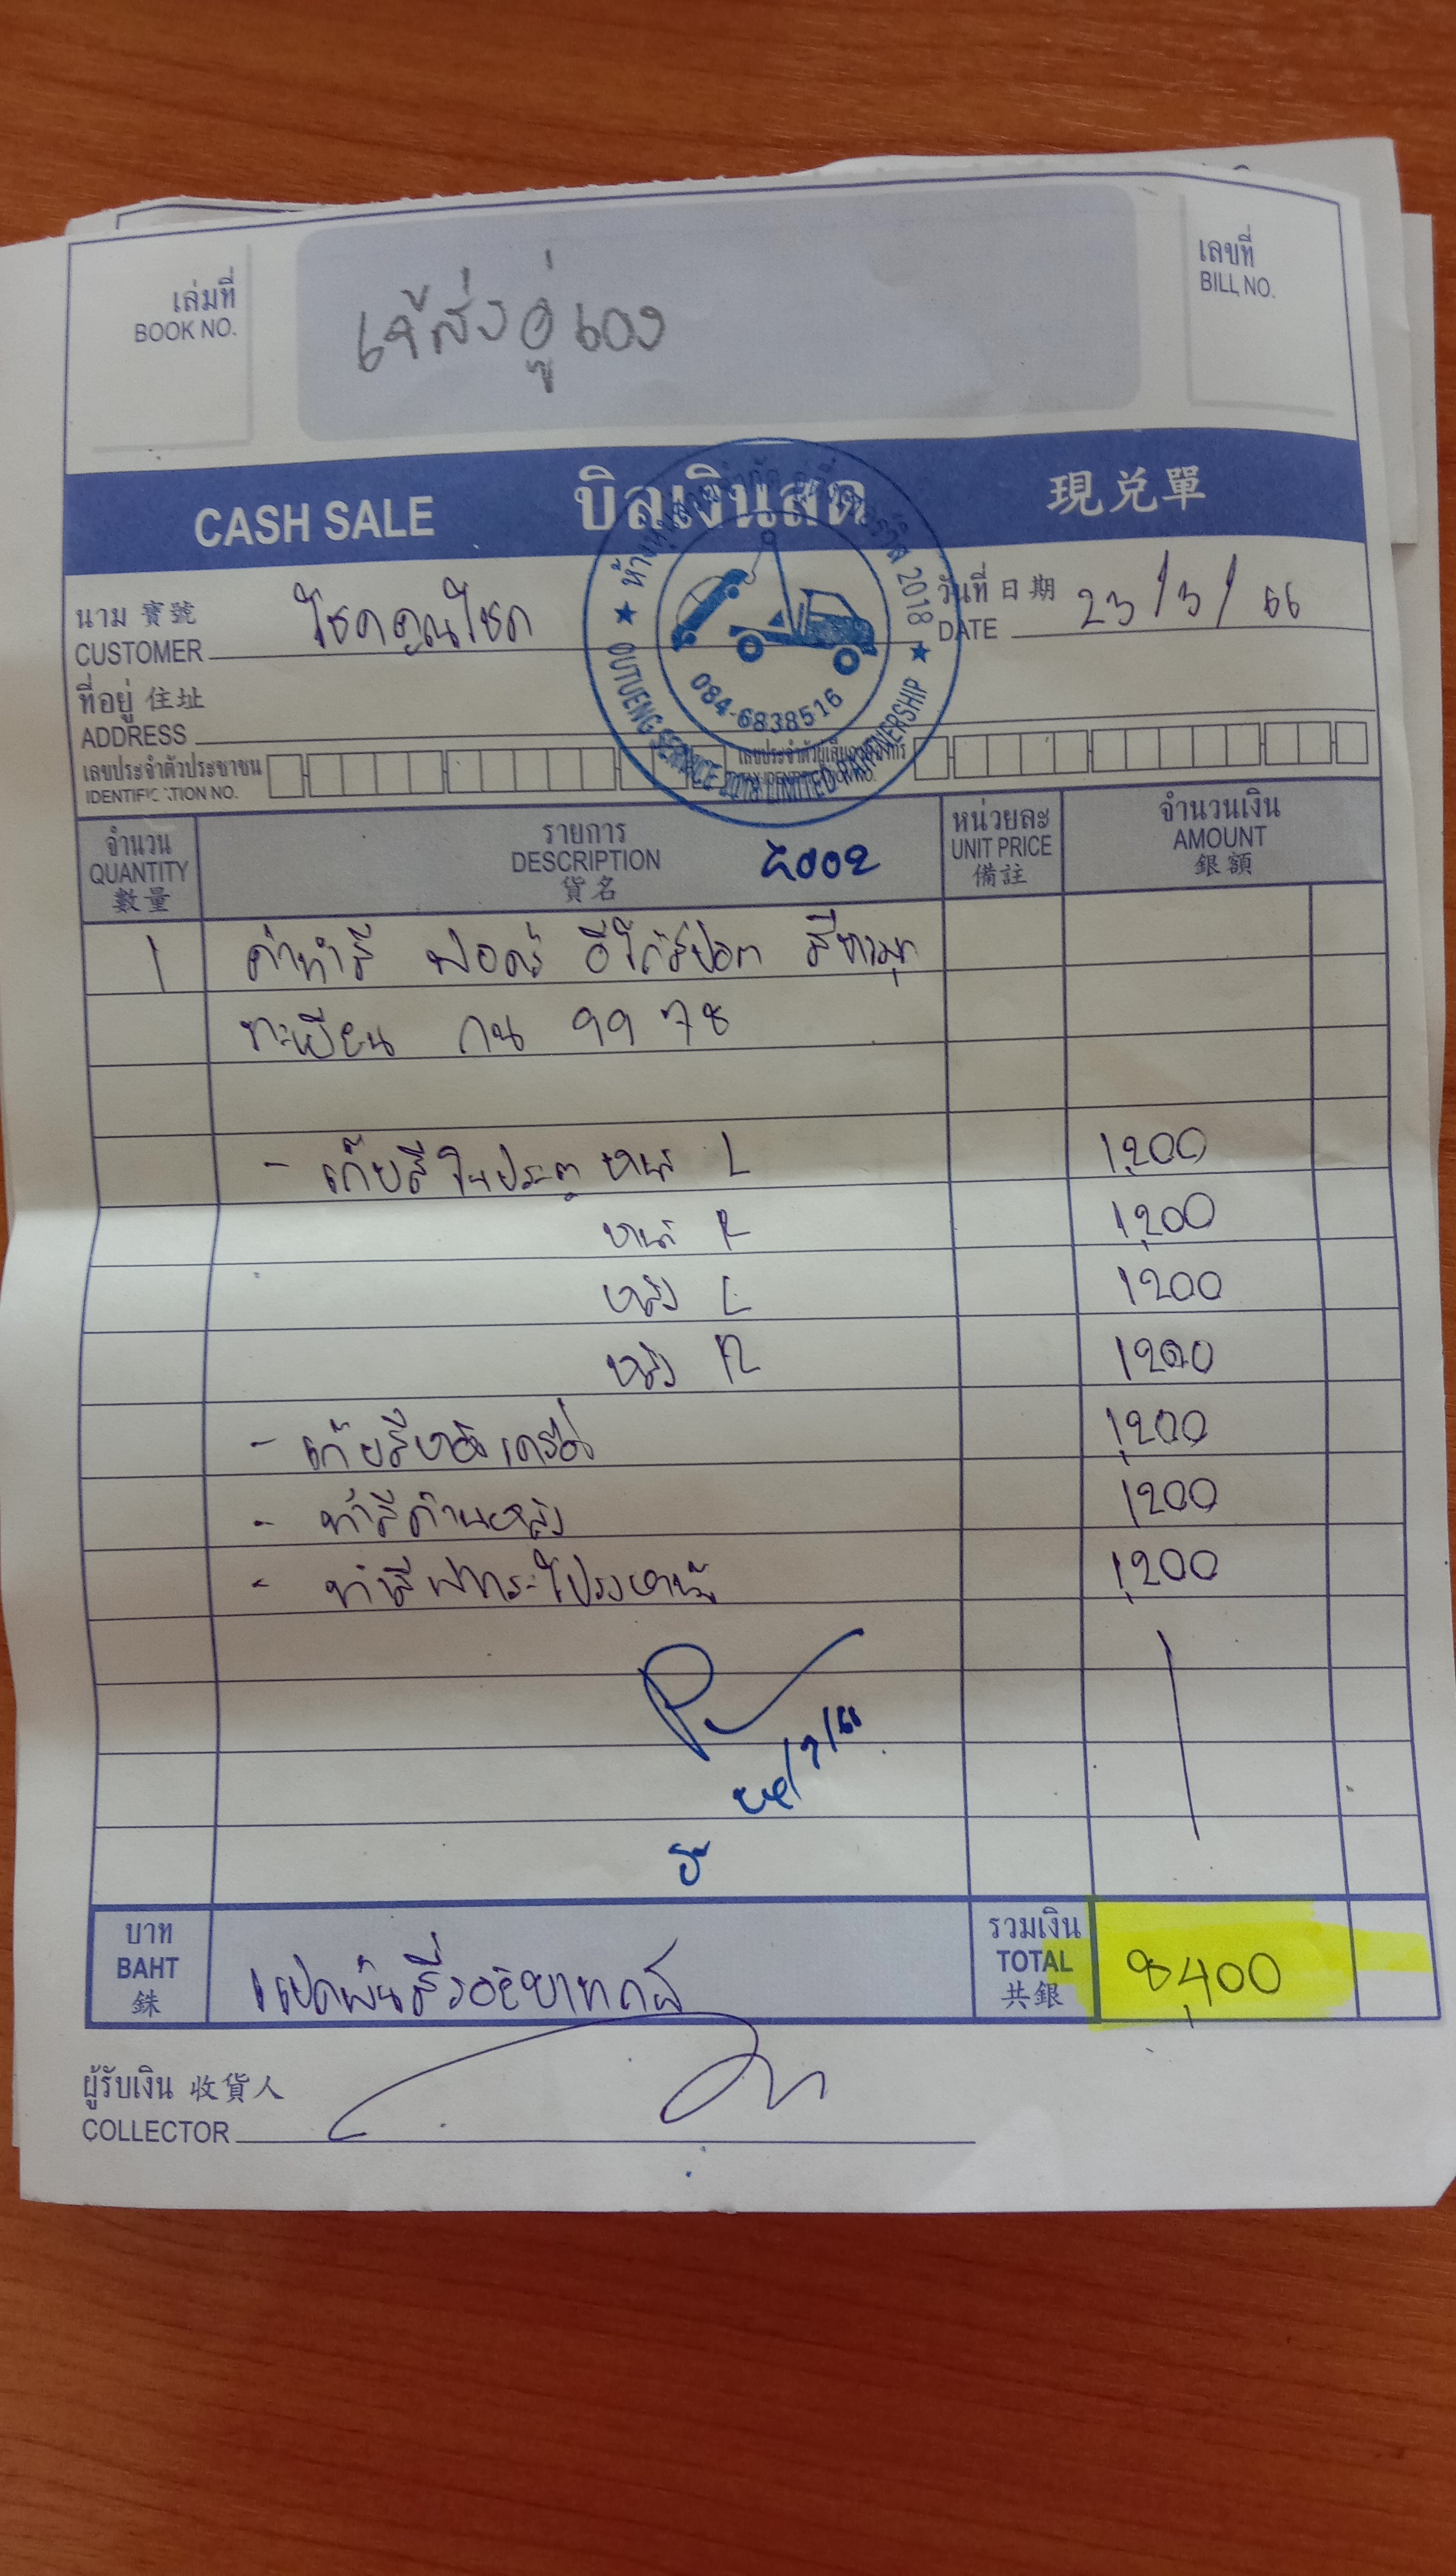 เล่มที่
BOOK NO.
เจ๊ส่งอู่เอง
เลขที่
BILL NO.
CASH SALE บิลเงินสด 現兑單
ห้างหุ้นส่วนจำกัด 2018
084-6838516
OUTUENG SERVICE 2018 LIMITED PARTNERSHIP
นาม 寶號
CUSTOMER โชคคูณโชค
วันที่ 日期
DATE 23/3/66
ที่อยู่ 住址
ADDRESS
เลขประจำตัวประชาชน
IDENTIFICATION NO.
เลขประจำตัวผู้เสียภาษีอากร
TAX IDENTIFICATION NO.
จำนวน
QUANTITY
數量
รายการ
DESCRIPTION
貨名
หน่วยละ
UNIT PRICE
備註
จำนวนเงิน
AMOUNT
銀額
1 ค่าทำสี ฟอดร์ อีโก้สปอต สีขาวมุก
ทะเบียน กน 9978
- เก็บสีในประตู หน้า L 1,200
หน้า R 1,200
หลัง L 1200
หลัง R 1200
- เก็บสีห้องเครื่อง 1,200
- ทำสีด้านหลัง 1200
- ทำสีฝากระโปรงหน้า 1,200
บาท
BAHT
銖
แปดพันสี่ร้อยบาทถ้วน
รวมเงิน
TOTAL
共銀
8,400
ผู้รับเงิน 收貨人
COLLECTOR